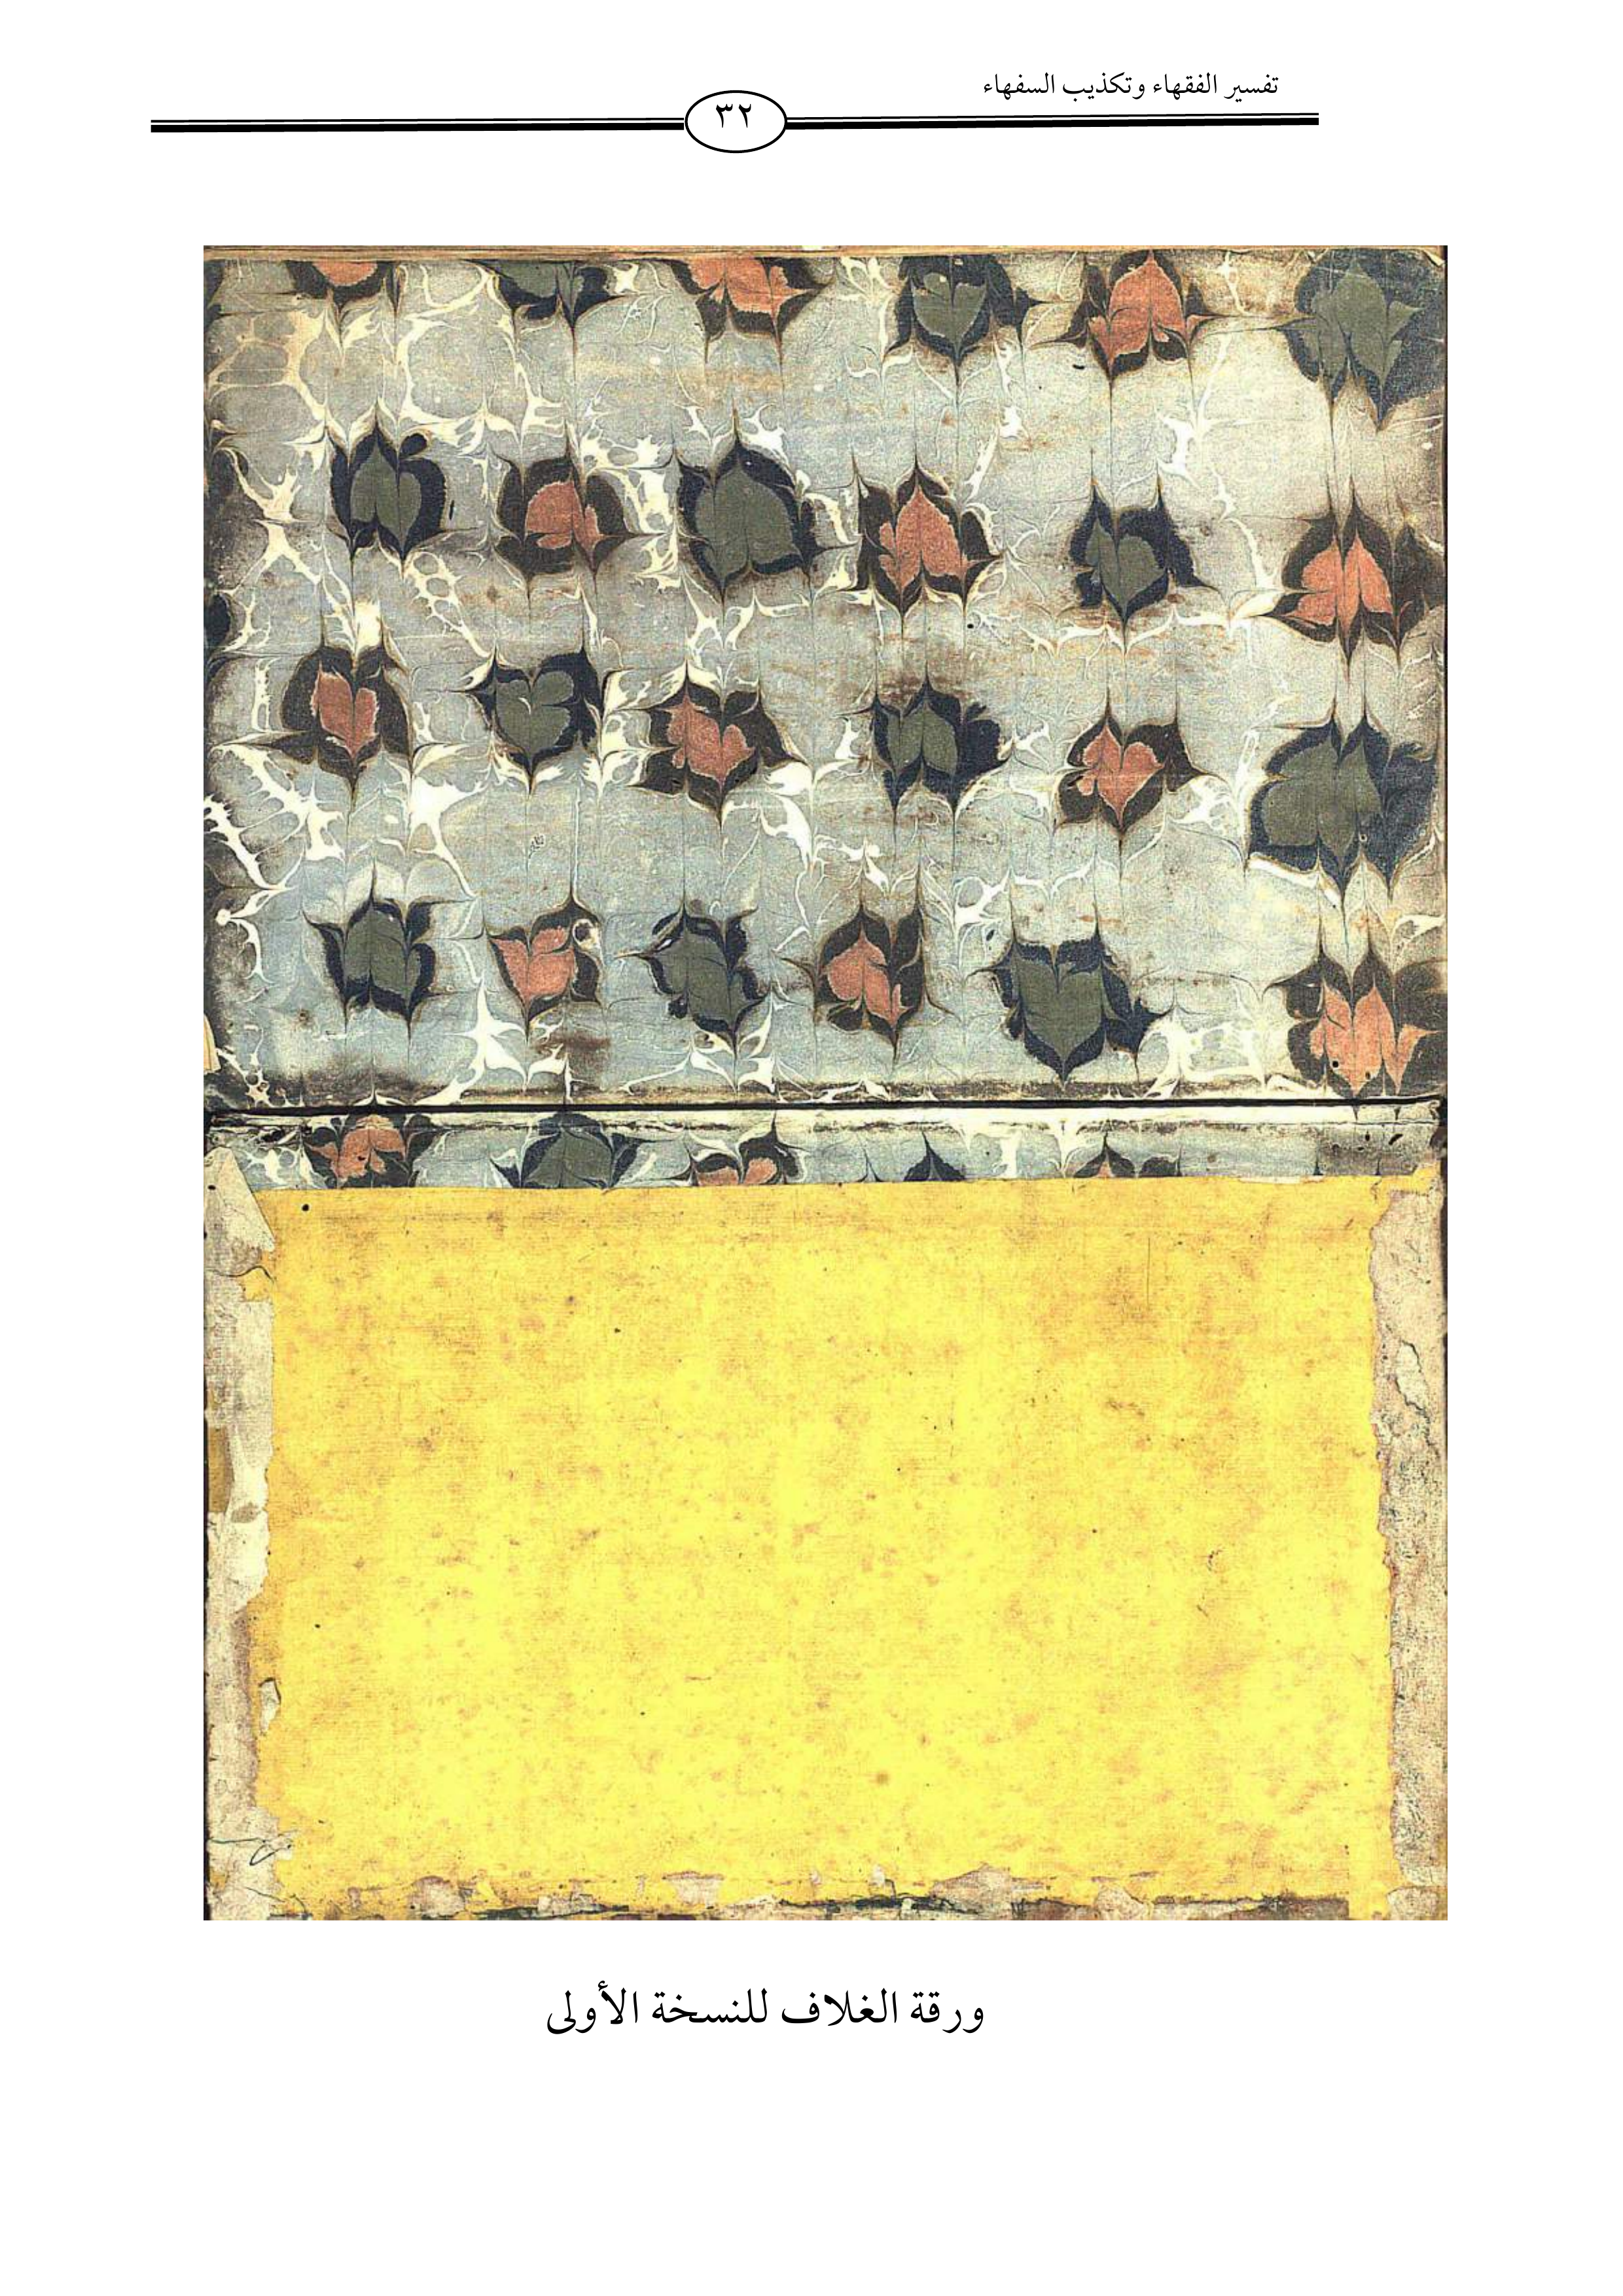 تفسير الفقهاء وتكذيب السفهاء
٣٢
ورقة الغلاف للنسخة الأولى